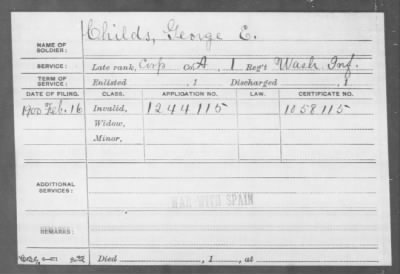 Childs, George E.
NAME OF
SOLDIER:
SERVICE: Late rank, Corp Co. A, 1 Reg't Wash. Inf.
TERM OF
SERVICE: Enlisted , 1 Discharged , 1
DATE OF FILING. CLASS. APPLICATION NO. LAW. CERTIFICATE NO.
1900 Feb. 16 Invalid, 1244115 1058115
Widow,
Minor,
ADDITIONAL
SERVICES:
WAR WITH SPAIN
REMARKS:
Died , 1 , at